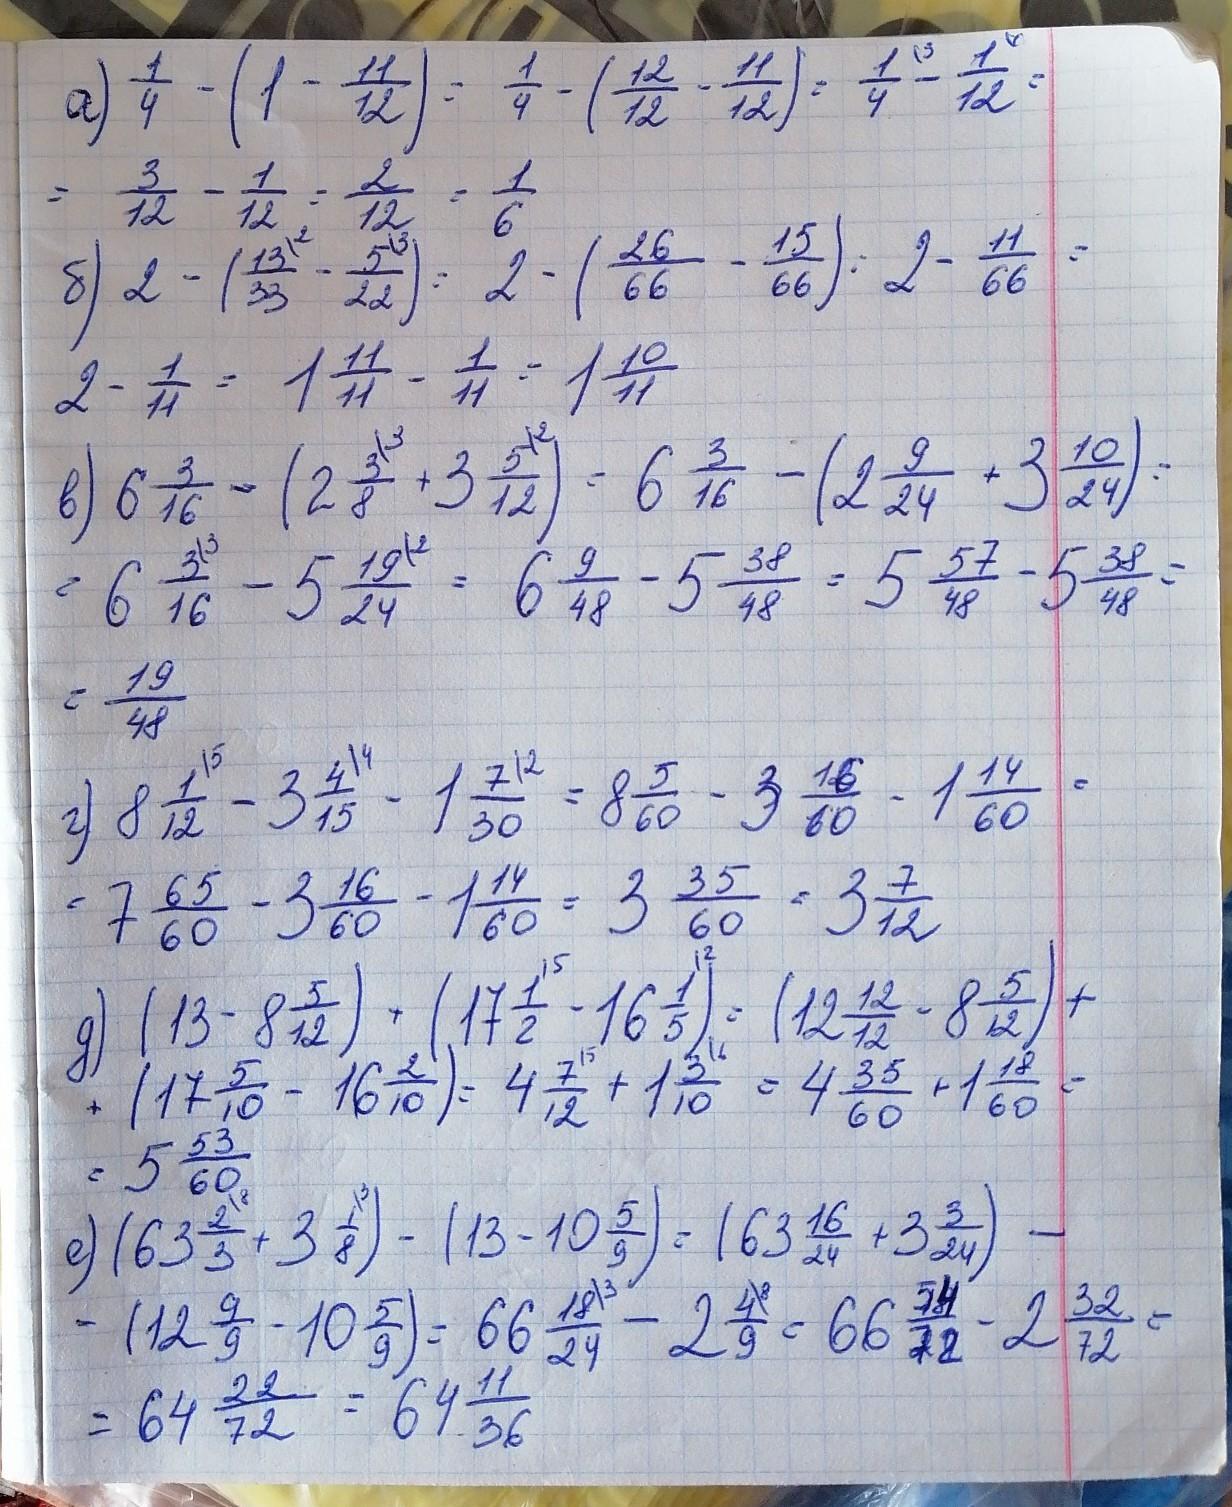 а) 1/4 - (1 - 11/12) = 1/4 - (12/12 - 11/12) = 1/4\3 - 1/12\ =
= 3/12 - 1/12 = 2/12 = 1/6
б) 2 - (13/33\2 - 5/22\3) = 2 - (26/66 - 15/66) = 2 - 11/66 =
2 - 1/11 = 1 11/11 - 1/11 = 1 10/11
в) 6 3/16 - (2 3/8\3 + 3 5/12\2) = 6 3/16 - (2 9/24 + 3 10/24) =
= 6 3/16\3 - 5 19/24\2 = 6 9/48 - 5 38/48 = 5 57/48 - 5 38/48 =
= 19/48
г) 8 1/12\5 - 3 4/15\4 - 1 7/30\2 = 8 5/60 - 3 16/60 - 1 14/60 =
= 7 65/60 - 3 16/60 - 1 14/60 = 3 35/60 = 3 7/12
д) (13 - 8 5/12) + (17 1/2\5 - 16 1/5\2) = (12 12/12 - 8 5/12) +
+ (17 5/10 - 16 2/10) = 4 7/12\5 + 1 3/10\6 = 4 35/60 + 1 18/60 =
= 5 53/60
е) (63 2/3\8 + 3 1/8\3) - (13 - 10 5/9) = (63 16/24 + 3 3/24) -
- (12 9/9 - 10 5/9) = 66 18/24\3 - 2 4/9\8 = 66 54/72 - 2 32/72 =
= 64 22/72 = 64 11/36